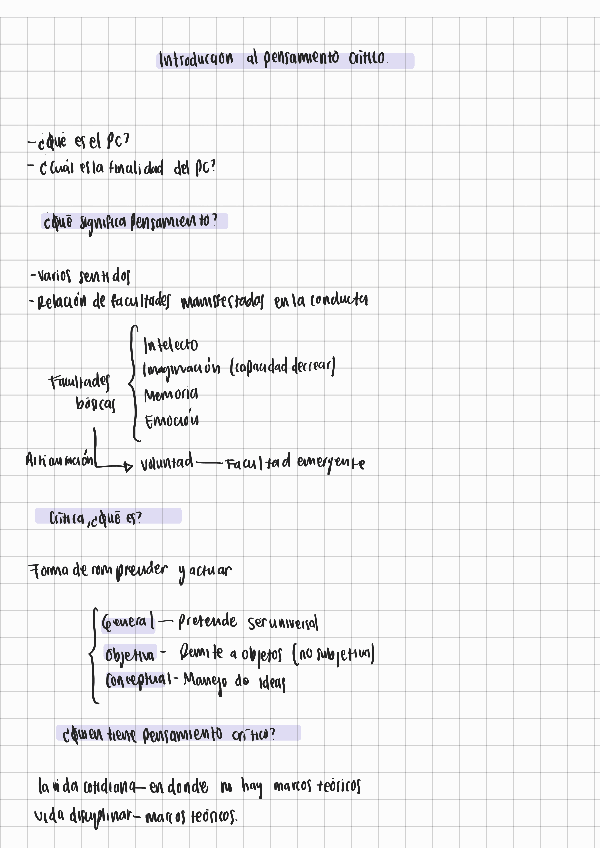 Introducción al pensamiento crítico.
- ¿Qué es el PC?
- ¿Cuál es la finalidad del PC?
¿Qué significa pensamiento?
- Varios sentidos
- Relación de facultades manifestadas en la conducta
Intelecto
Imaginación (capacidad de crear)
Facultades
Memoria
básicas
Emoción
Articulación → voluntad — Facultad emergente
Crítica, ¿Qué es?
Forma de comprender y actuar
General — Pretende ser universal
Objetiva - Remite a objetos (no subjetiva)
Conceptual - Manejo de ideas
¿Quien tiene pensamiento crítico?
la vida cotidiana — en donde no hay marcos teóricos
vida disciplinar — marcos teóricos.